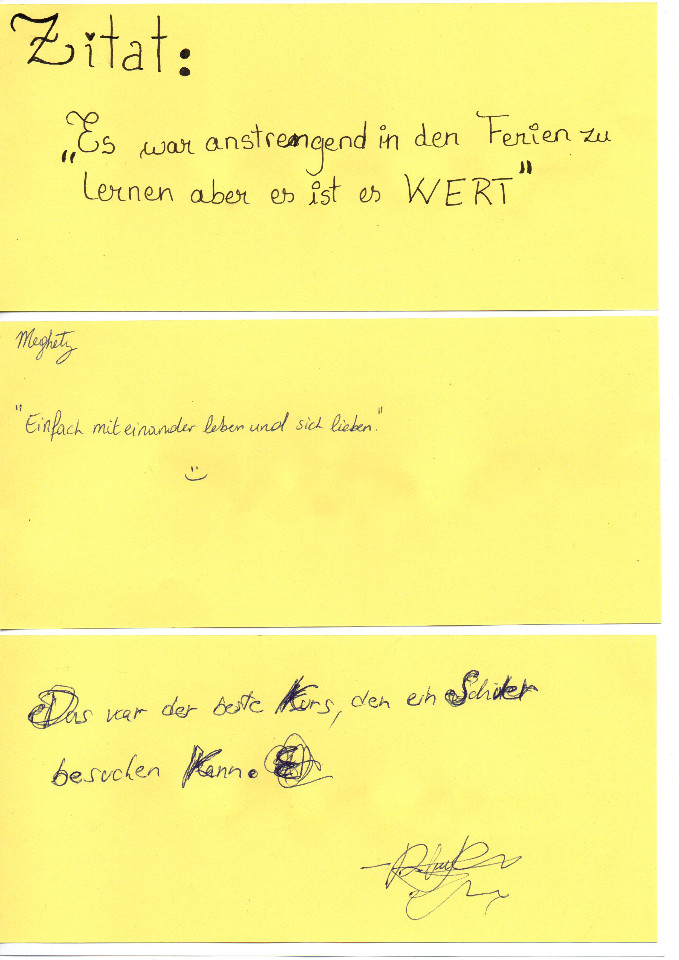 Zitat:
„Es war anstrengend in den Ferien zu
lernen aber es ist es WERT"
Meghety
"Einfach miteinander leben und sich lieben."
Das war der beste Kurs, den ein Schüler
besuchen Kann.